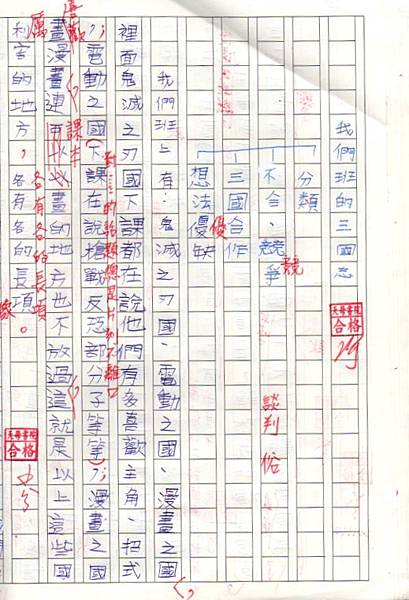 我們班的三國志
分類
不合、競爭
競
三國合作
想法優缺
優
談判
合格
我們班上有:鬼滅之刃國、電動之國、漫畫之國
裡面鬼滅之刃國下課都在說他們有多喜歡主角、把式
對…的話題總是片刻不離口
電動之國下課在說槍戰反恐部分子等等;漫畫之國
課本
畫漫畫連可以畫的地方也不放過這就是以上這些國
各有各的長項
厲
利害的地方,各有各的長項。
合格